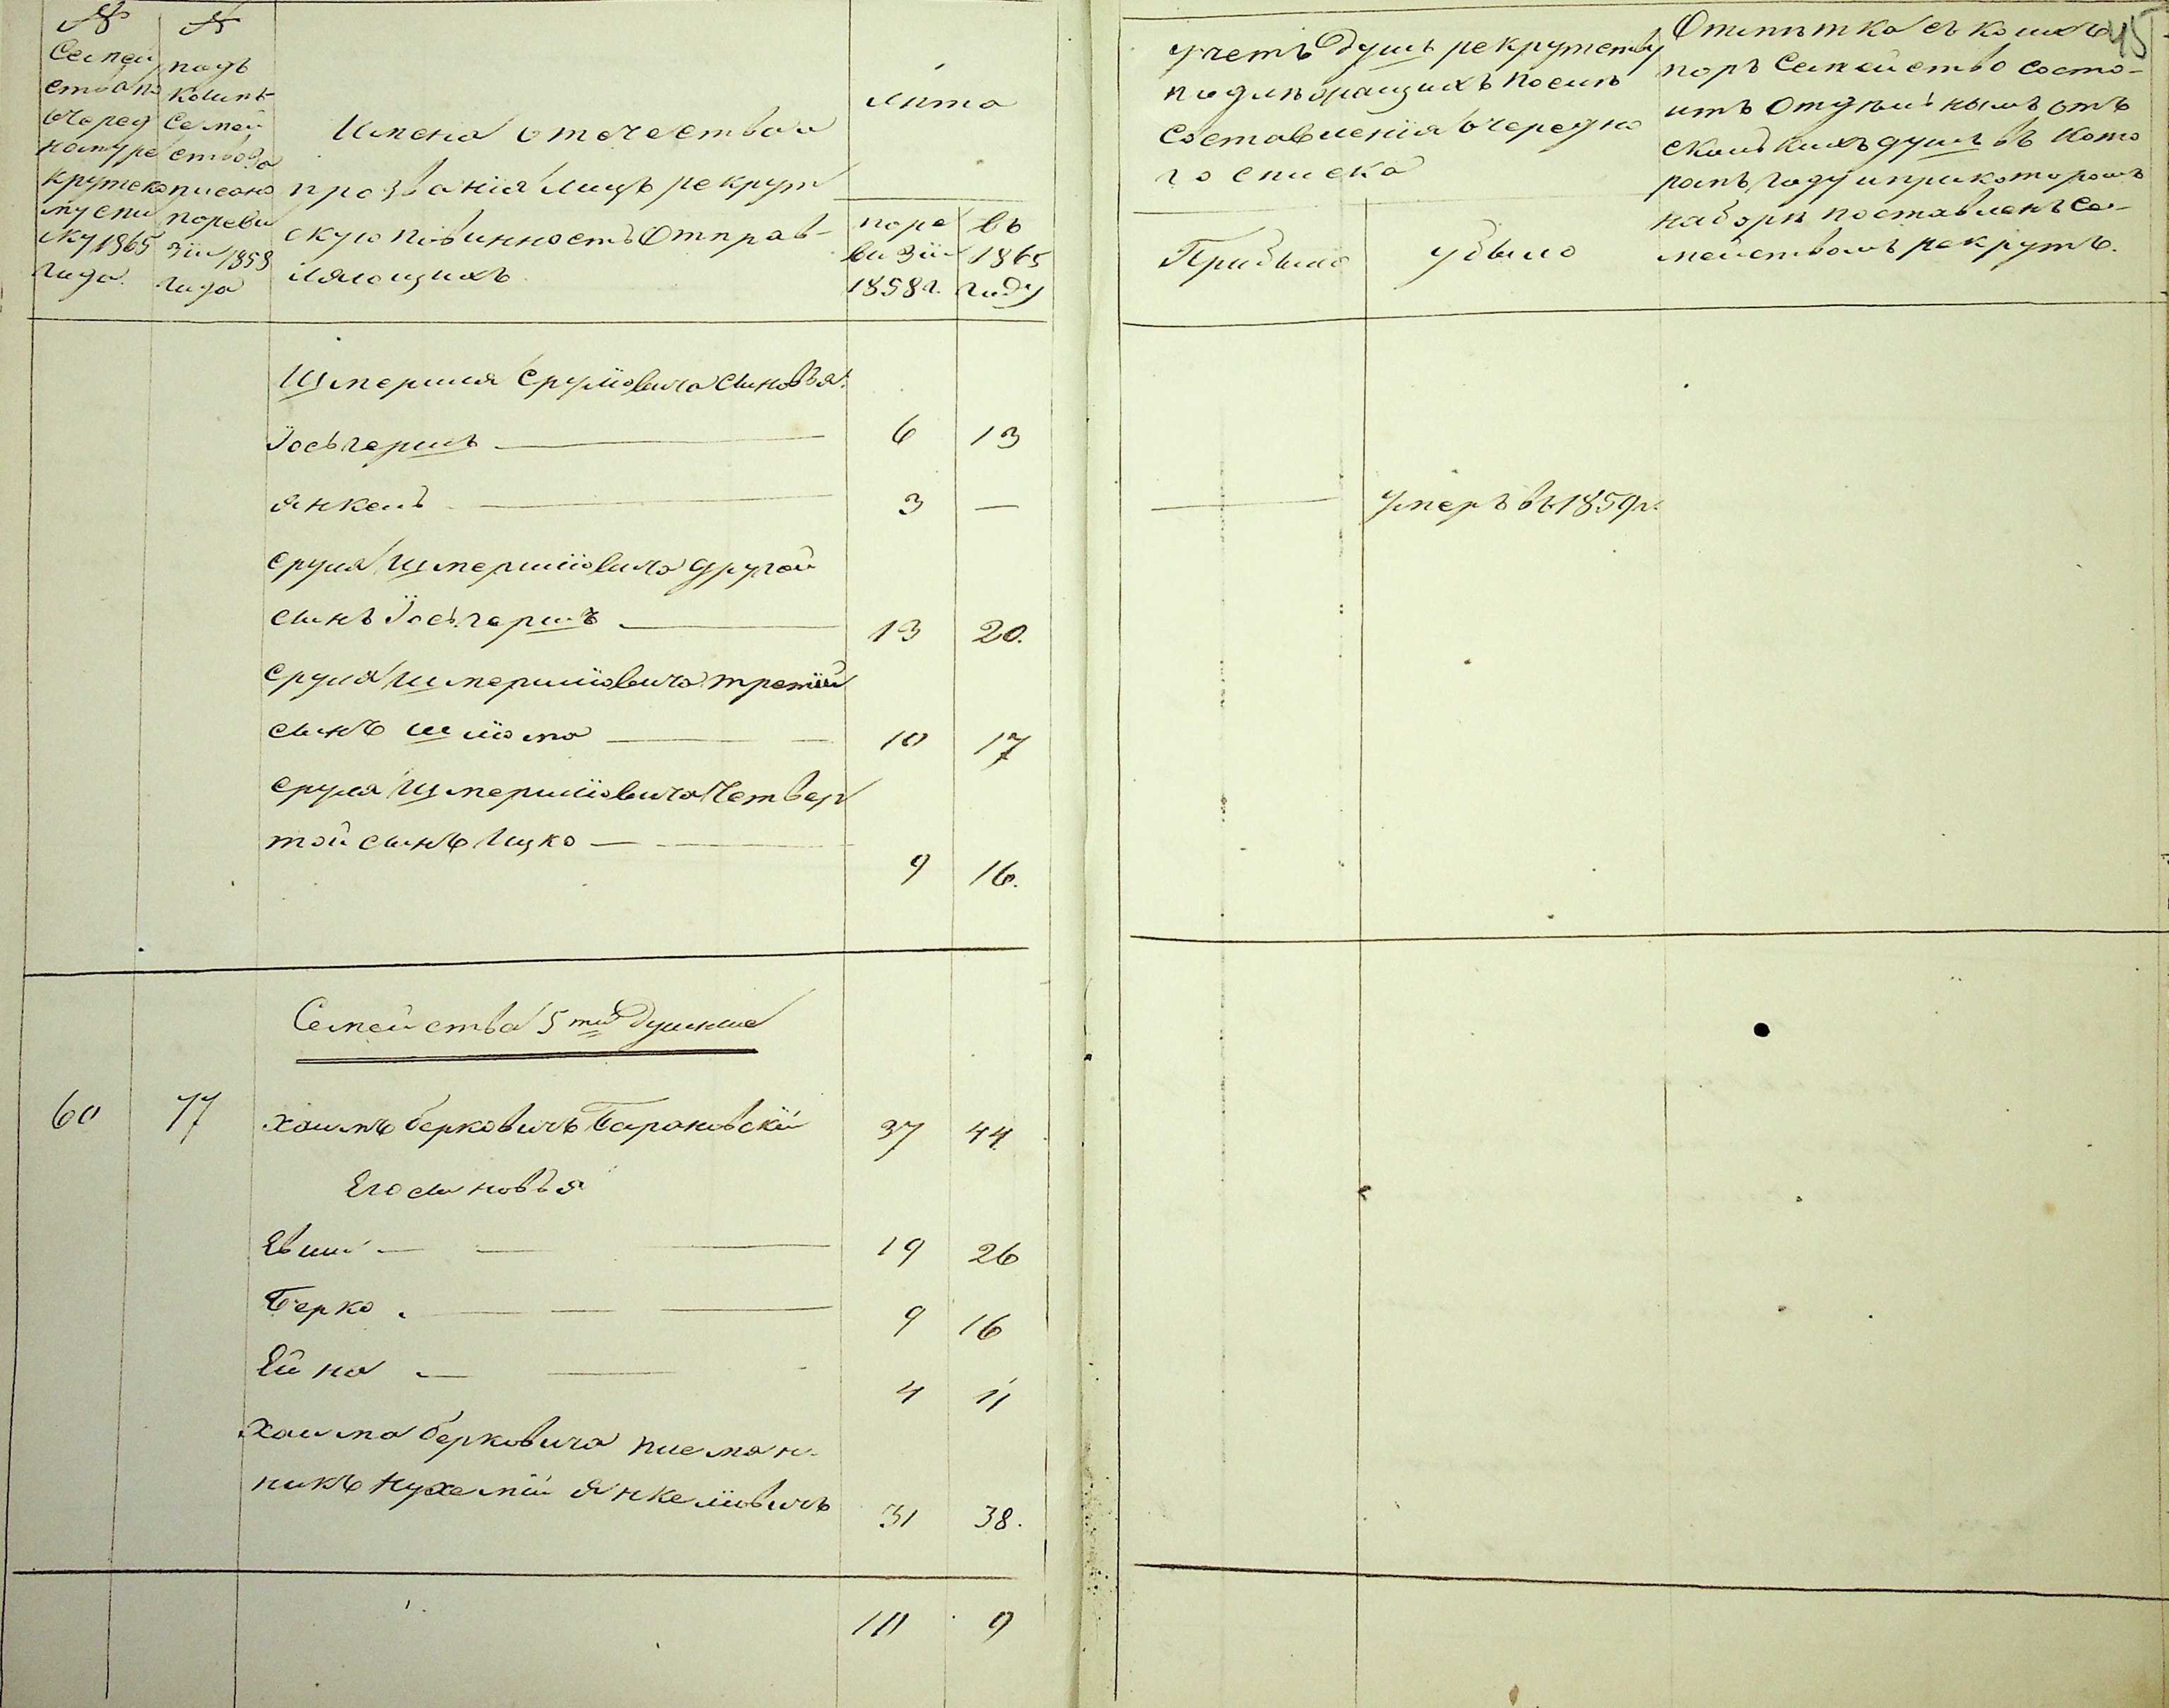 №
Семей
ства по
очеред
ному ре
крутско
му спи
ску 1865
года.
№
подъ
коимъ
Семей
ство за
писано
по реви
зіи 1858
года
Имена отечества и
прозванія лицъ рекрут
скую повинность отправ-
ляющихъ.
лѣта
по ре
визіи
1858 г.
въ
1865
году
учетъ душъ рекрутству
подлѣжащихъ после
составленія очередна
го списка
Прибыло
убыло
Отмѣтка съ коихъ
поръ Семейство состо-
итъ отдѣльнымъ отъ
сколькихъ душъ въ кото
ромъ году и при которомъ
наборѣ поставленъ се-
мействомъ рекрутъ.
45
Шмерля Срулiовича сыновья:
Іосьгершъ 6 13
Янкель 3 — умеръ въ 1859 г.
Сруля Шмерлiовича другой
сынъ Іосьгершъ 13 20.
Сруля Шмерлiовича третiй
сынъ Шліома 10 17
Сруля Шмерлiовича Четвер
той сынъ Ицко 9 16.
Семейства 5 ти Душные
60 77 Хаимъ Берковичъ Барановскій 37 44.
Его сыновья
Евши 19 26
Берко 9 16
Ейна 4 11
Хаима Берковича племян-
никъ Нухемiй Янкелiовичъ 31 38.
10 9